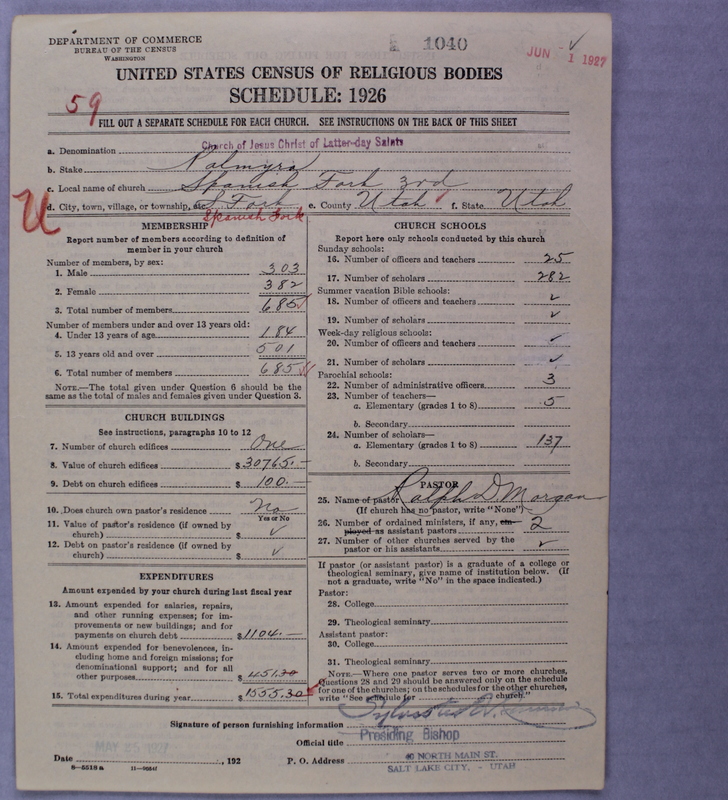 DEPARTMENT OF COMMERCE
BUREAU OF THE CENSUS
WASHINGTON
1040
JUN 1 1927
UNITED STATES CENSUS OF RELIGIOUS BODIES
SCHEDULE: 1926
59
FILL OUT A SEPARATE SCHEDULE FOR EACH CHURCH. SEE INSTRUCTIONS ON THE BACK OF THIS SHEET
a. Denomination Church of Jesus Christ of Latter-day Saints
b. Stake Palmyra
c. Local name of church Spanish Fork 3rd
d. City, town, village, or township, etc. S. Fork e. County Utah f. State Utah
Spanish Fork
U
MEMBERSHIP
Report number of members according to definition of
member in your church
Number of members, by sex:
1. Male 303
2. Female 382
3. Total number of members 685
Number of members under and over 13 years old:
4. Under 13 years of age 184
5. 13 years old and over 501
6. Total number of members 685
NOTE.—The total given under Question 6 should be the
same as the total of males and females given under Question 3.
CHURCH BUILDINGS
See instructions, paragraphs 10 to 12
7. Number of church edifices One
8. Value of church edifices $30765.—
9. Debt on church edifices $100.—
10. Does church own pastor's residence No
Yes or No
11. Value of pastor's residence (if owned by
church) $ ✓
12. Debt on pastor's residence (if owned by
church) $ ✓
EXPENDITURES
Amount expended by your church during last fiscal year
13. Amount expended for salaries, repairs,
and other running expenses; for im-
provements or new buildings; and for
payments on church debt $1104.—
14. Amount expended for benevolences, in-
cluding home and foreign missions; for
denominational support; and for all
other purposes $451.30
15. Total expenditures during year $1555.30
CHURCH SCHOOLS
Report here only schools conducted by this church
Sunday schools:
16. Number of officers and teachers 25
17. Number of scholars 282
Summer vacation Bible schools:
18. Number of officers and teachers ✓
19. Number of scholars ✓
Week-day religious schools:
20. Number of officers and teachers ✓
21. Number of scholars ✓
Parochial schools:
22. Number of administrative officers 3
23. Number of teachers—
a. Elementary (grades 1 to 8) 5
b. Secondary
24. Number of scholars—
a. Elementary (grades 1 to 8) 137
b. Secondary
PASTOR
25. Name of pastor Ralph D. Morgan
(If church has no pastor, write "None")
26. Number of ordained ministers, if any, em-
ployed as assistant pastors 2
27. Number of other churches served by the
pastor or his assistants ✓
If pastor (or assistant pastor) is a graduate of a college or
theological seminary, give name of institution below. (If
not a graduate, write "No" in the space indicated.)
Pastor:
28. College
29. Theological seminary
Assistant pastor:
30. College
31. Theological seminary
NOTE.—Where one pastor serves two or more churches,
Questions 28 and 29 should be answered only on the schedule
for one of the churches; on the schedules for the other churches,
write "See schedule for church."
Signature of person furnishing information
Official title Presiding Bishop
Date MAY 25 1927, 192 P. O. Address 40 NORTH MAIN ST.
SALT LAKE CITY, - UTAH
8—5518a 11—90547